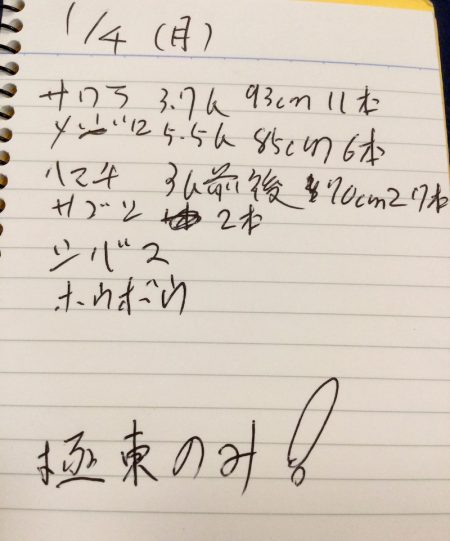 1/4 (月)
サワラ 3.7k 93cm 11本
メジロ 5.5k 85cm 6本
ハマチ 3k前後 70cm 27本
サゴシ 2本
ツバス
ホウボウ
極東のみ!